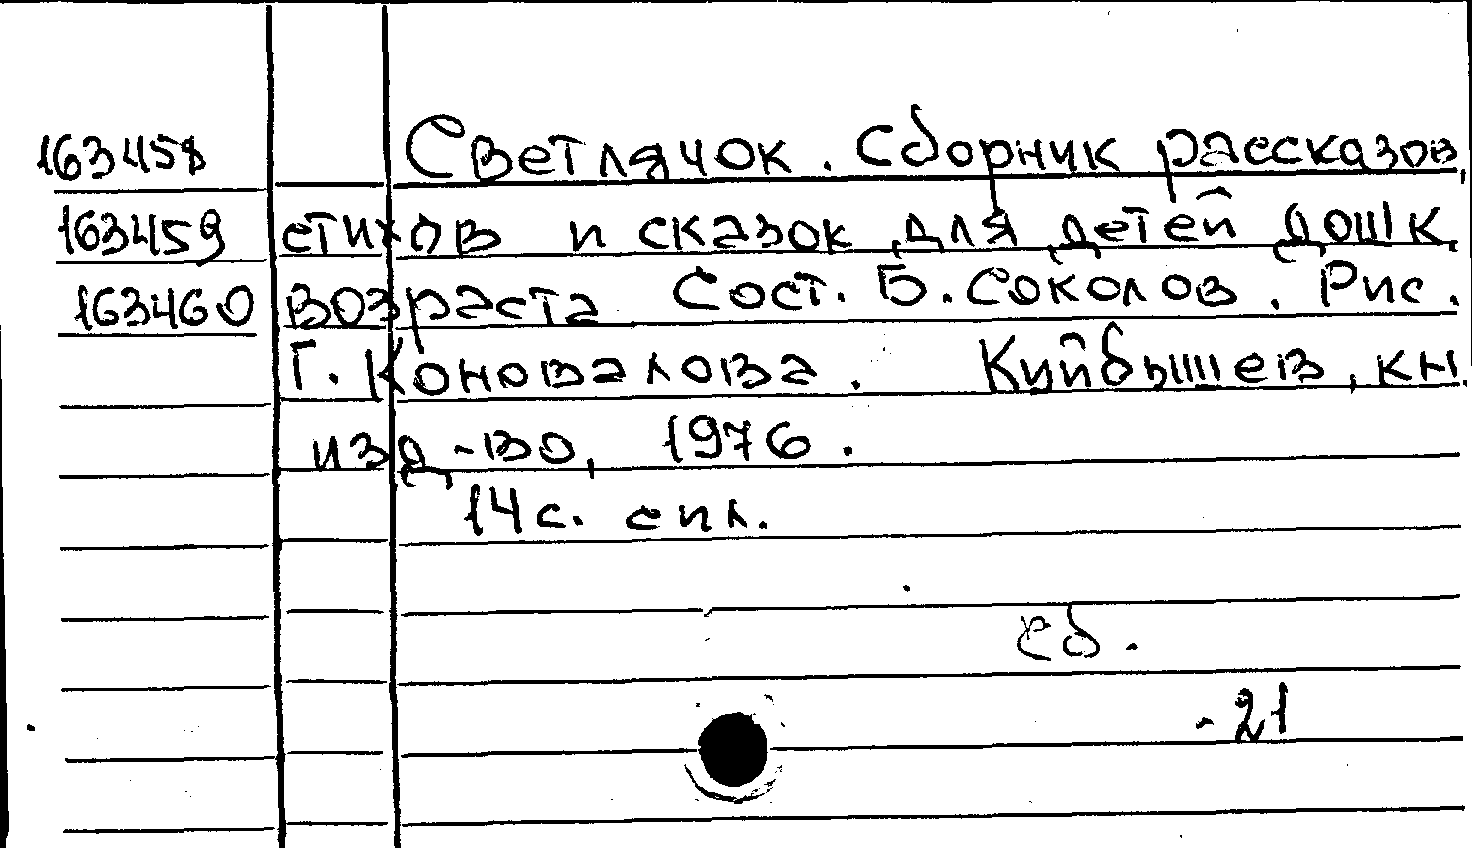 163458 Светлячок. Сборник рассказов,
163459 стихов и сказок для детей дошк.
163460 возраста Сост. Б. Соколов. Рис.
Г. Коновалова. Куйбышев, кн.
изд-во, 1976.
14 с. с ил.
сб.
-21